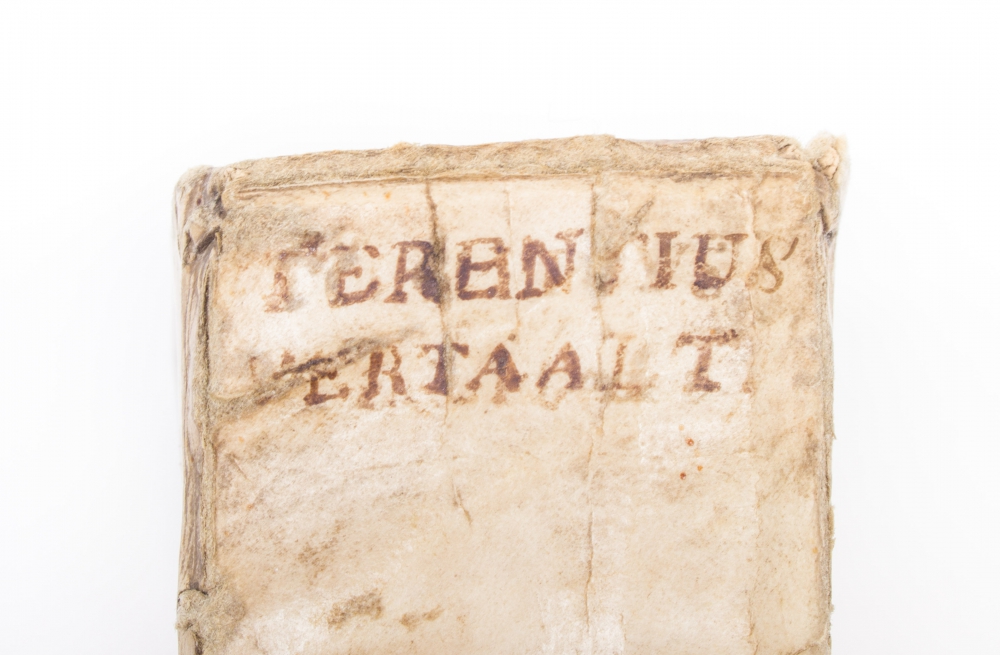 TERENTIUS
VERTAALT